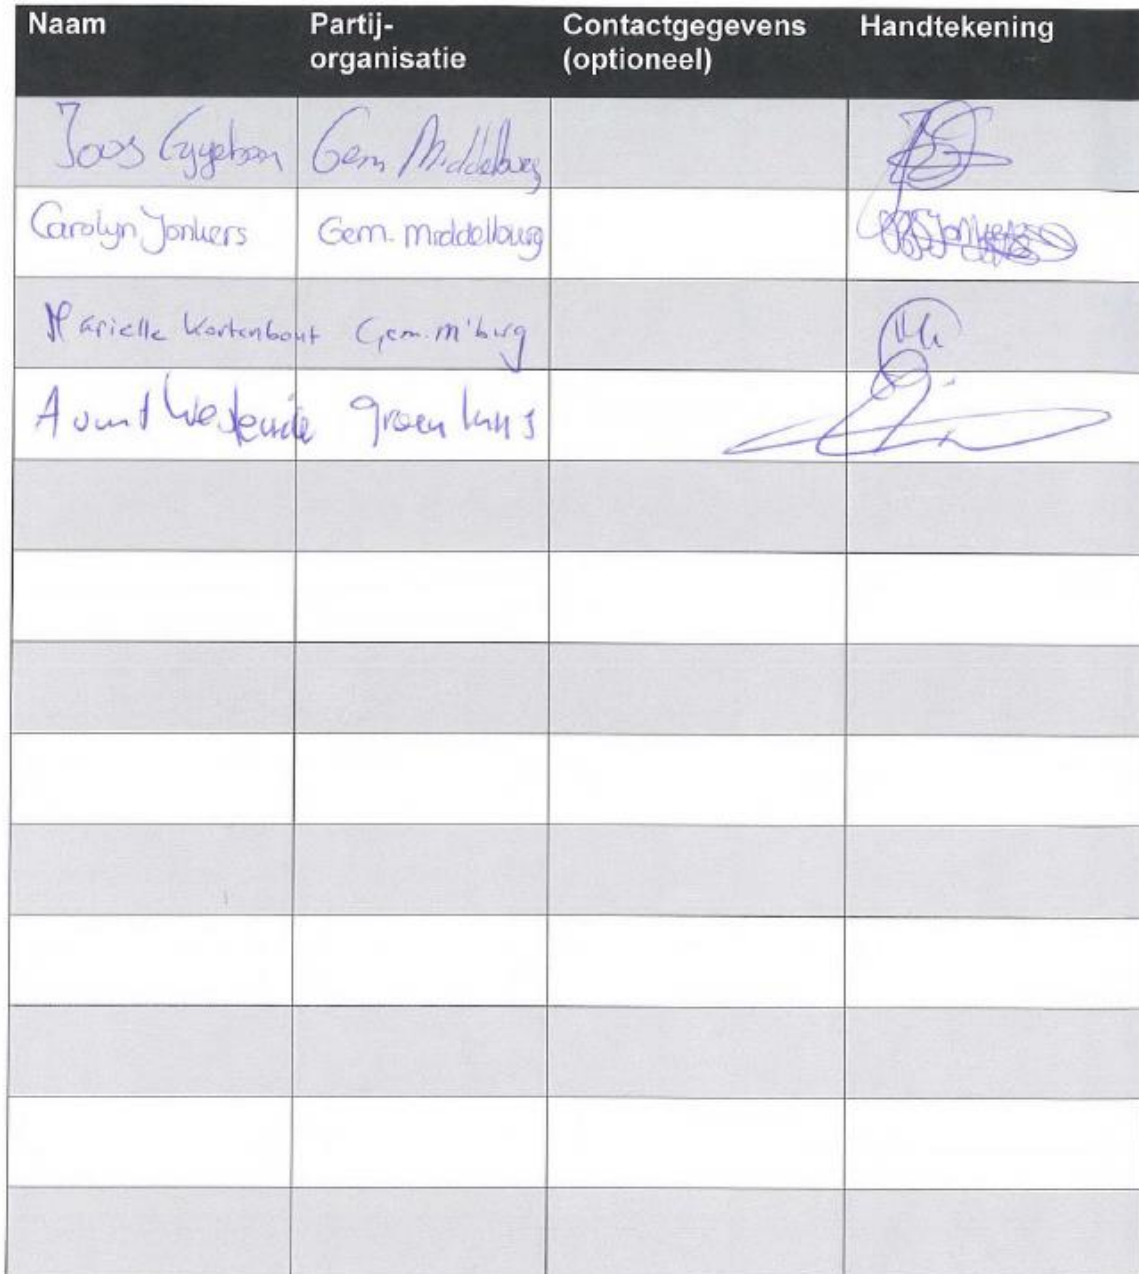 Naam Partij-organisatie Contactgegevens (optioneel) Handtekening
Joos Gem Middelburg
Carolyn Jonkers Gem. Middelburg
Marielle Kortenbout Gem. m'burg
A vund Westeinde Groen links